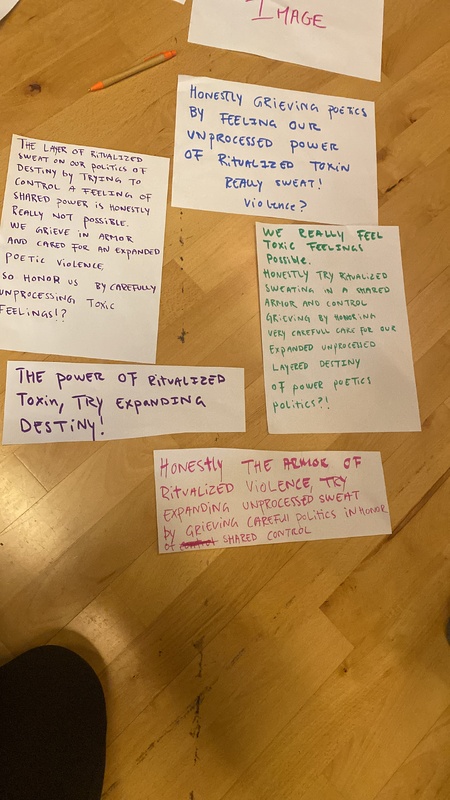 IMAGE
HONESTLY GRIEVING POETICS
BY FEELING OUR
UNPROCESSED POWER
OF RITUALIZED TOXIN
REALLY SWEAT!
VIOLENCE?
THE LAYER OF RITUALIZED
SWEAT ON OUR POLITICS OF
DESTINY BY TRYING TO
CONTROL A FEELING OF
SHARED POWER IS HONESTLY
REALLY NOT POSSIBLE.
WE GRIEVE IN ARMOR
AND CARED FOR AN EXPANDED
POETIC VIOLENCE
SO HONOR US BY CAREFULLY
UNPROCESSING TOXIC
FEELINGS!?
WE REALLY FEEL
TOXIC FEELINGS
POSSIBLE.
HONESTLY TRY RITUALIZED
SWEATING IN A SHARED
ARMOR AND CONTROL
GRIEVING BY HONORING
VERY CAREFULL CARE FOR OUR
EXPANDED UNPROCESSED
LAYERED DESTINY
OF POWER POETICS
POLITICS?!
THE POWER OF RITUALIZED
TOXIN, TRY EXPANDING
DESTINY!
HONESTLY THE ARMOR OF
RITUALIZED VIOLENCE, TRY
EXPANDING UNPROCESSED SWEAT
by GRIEVING CAREFUL POLITICS IN HONOR
OF CONTROL SHARED CONTROL